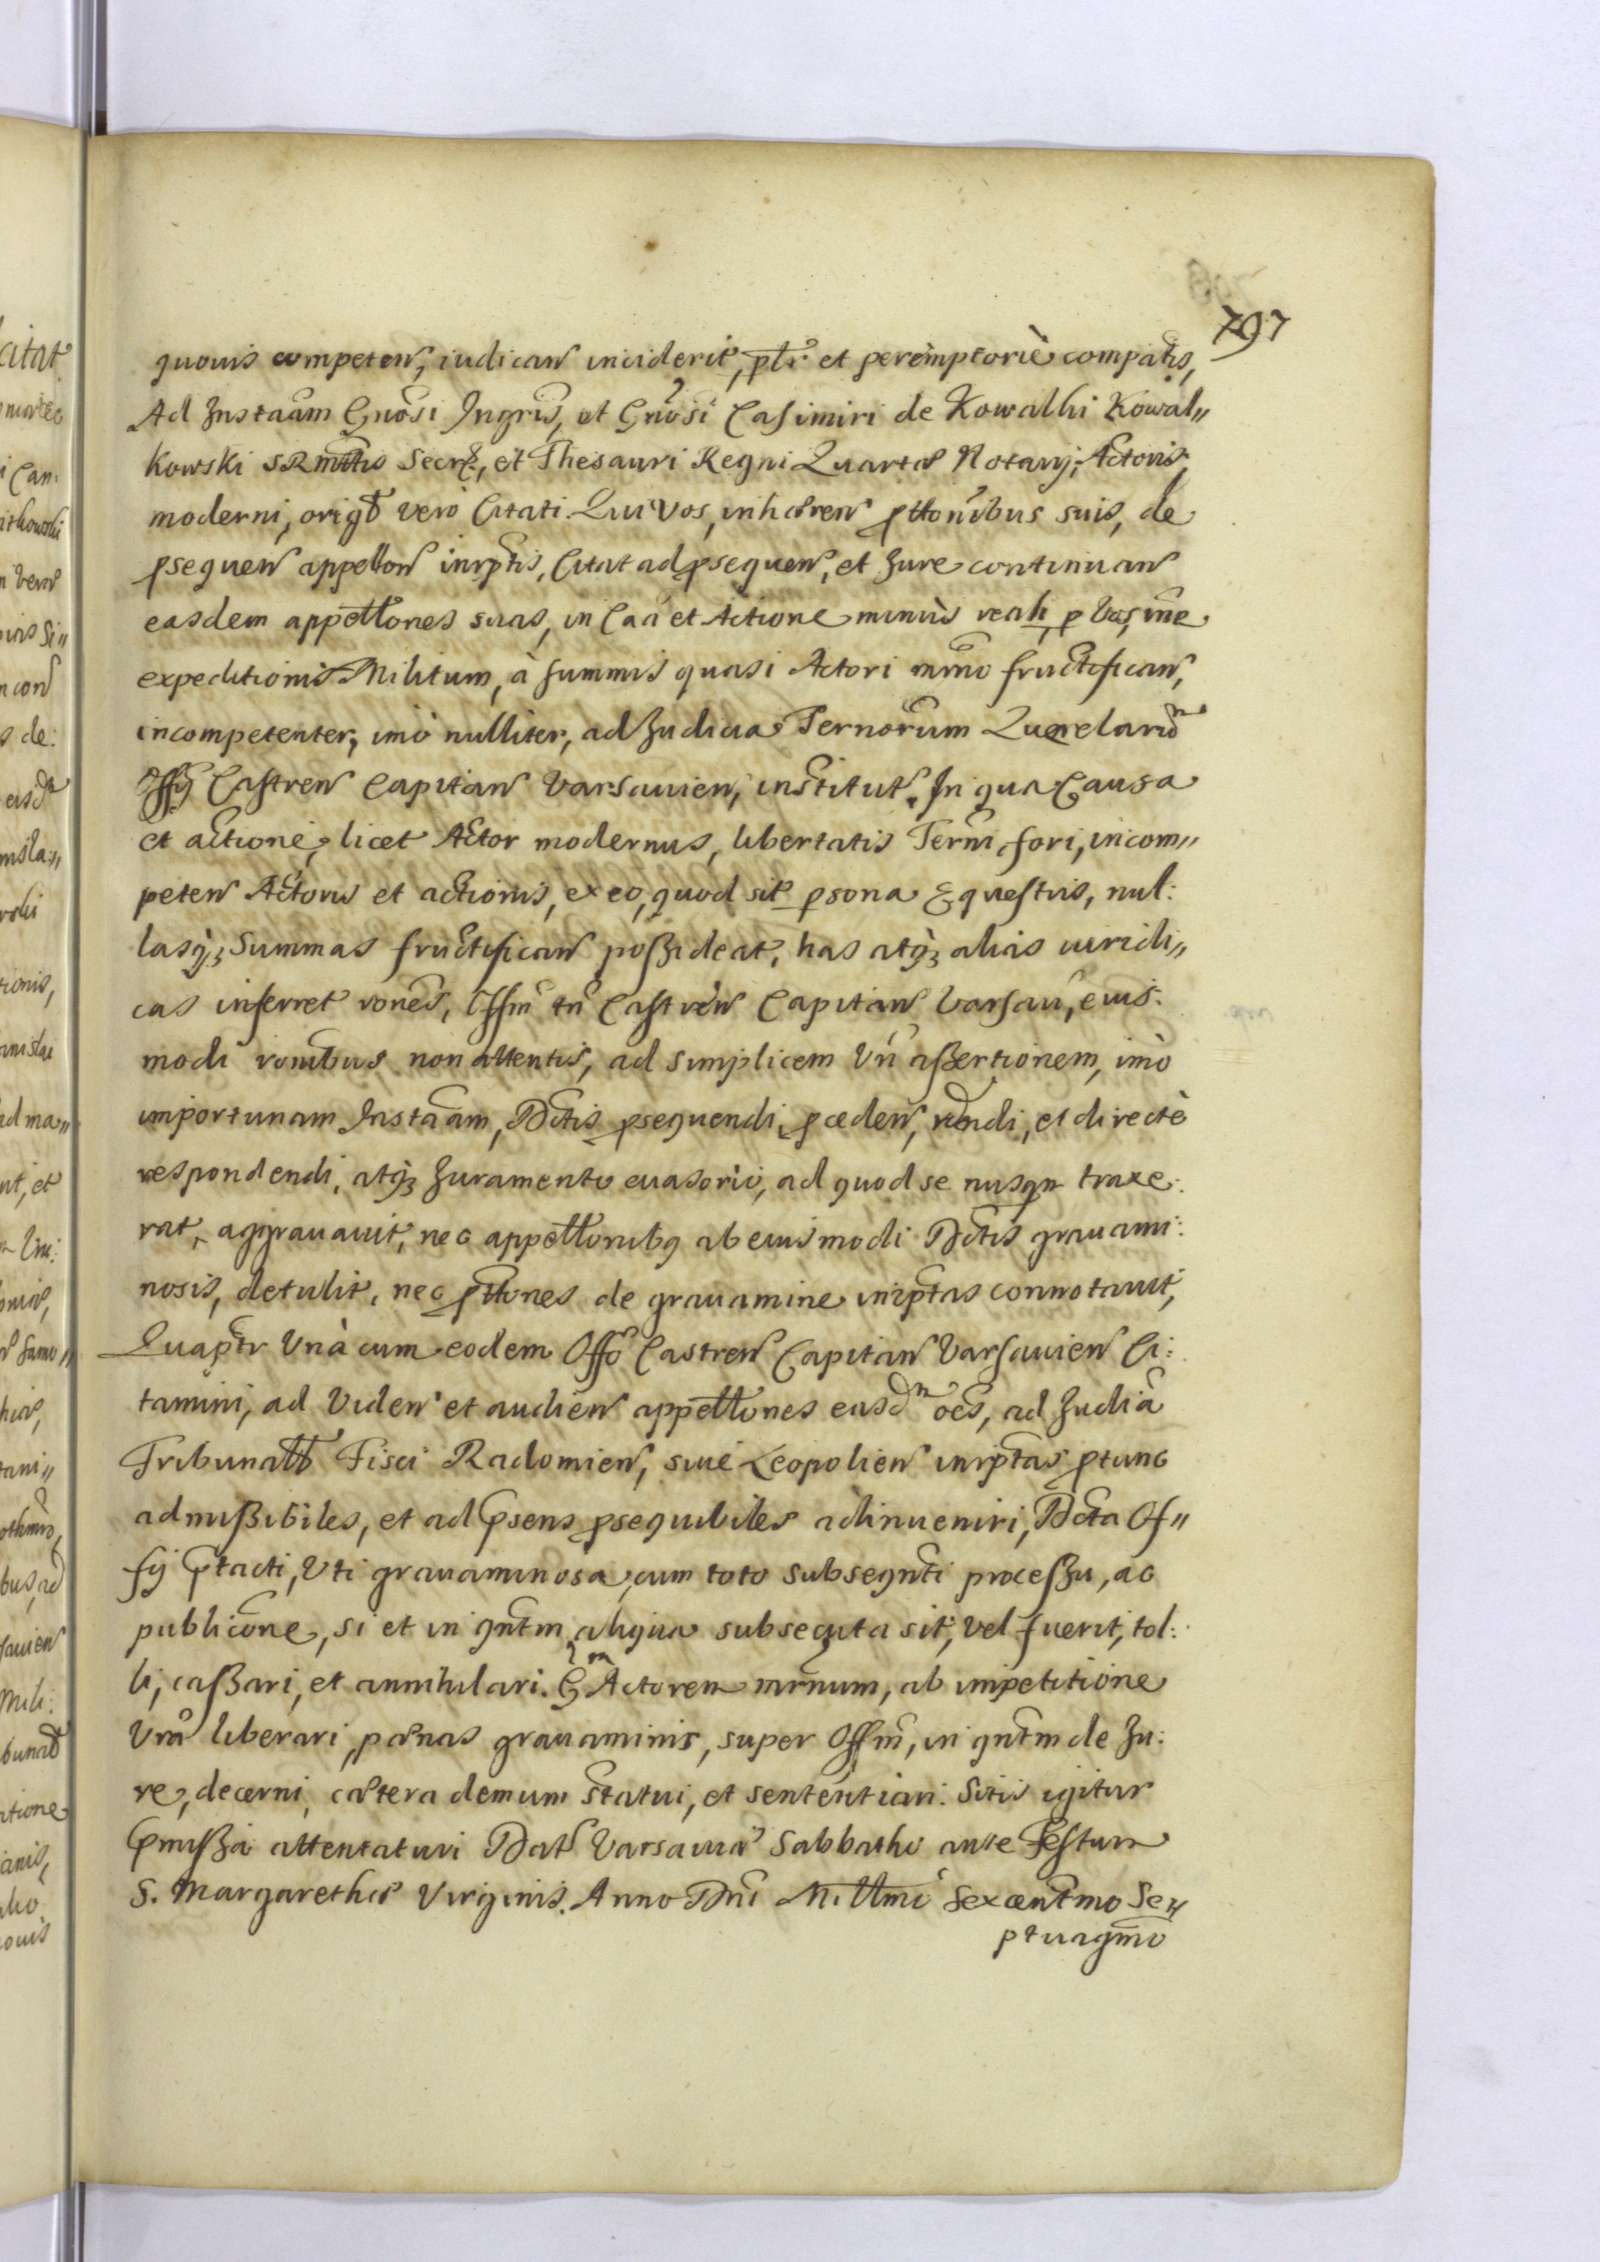 797
quouis competen, iudican inciderit, pltr et peremptorie compatis,
Ad Instaam Gnosi Ingris, et Gnosi Casimiri de Kowalki Kowal„
kowski SRMttis Secr, et Thesauri Regni Quartæ Notarij, Actoris
moderni, orig vero Citati. Qui Vos, inhæren pttonibus suis, de
psequen appellon inrptis, Citat ad psequen, et Jure continuan
easdem appellones suas, in Caa et Actione minus reali, p Vos, ine
expeditionis Militum, à summis quasi Actori mrno fructifican,
incompetenter, imò nulliter, ad Judicia Ternorum Querelarum
Offij Castren Capitan Varsauien, institut. In qua Causa
et actione, licet Actor modernus, libertatis Terni, fori, incom„
peten Actoris et actionis, ex eo, quod sit psona Equestris, nul:
lasq; Summas fructifican possideat, has atq; alias iuridi„
cas inferret rones, Offm tn Castren Capitan Varsau, eius:
modi ronibus non attentis, ad simplicem Vn assertionem, imò
importunam Instaam, Dctis psequendi, pceden, rndi, et directè
respondendi, atq; Juramento euasorio, ad quod se nusqm traxe:
rat, aggrauauit, nec appellonibq ab eiusmodi Dctis grauami:
nosis, detulit, nec pttones de grauamine inrptas connotauit,
Quaptr Vnà cum eodem Offo Castren Capitan Varsauien Ci:
tamini, ad Viden et audien appellones easdm oes, ad Judia
Tribunal Fisci Radomien, siue Leopolien inrptas ptunc
admissibiles, et ad psens psequibiles adinueniri, Dcta Of„
fij ptacti, Vti grauaminosa, cum toto subseqnti processu, ac
publicone, si et in qntm aliqua subsequta sit, vel fuerit, tol:
li, cassari, et annihilari. Gm Actorem mrnum, ab impetitione
Vra liberari, pænas grauaminis, super Offm, in qntm de Ju:
re, decerni, cætera demum statui, et sententiari. Sitis igitur
pmissa attentaturi Dat Varsauiæ Sabbatho ante Festum
S. Margarethæ Virginis. Anno Dni Millmo Sexcentmo Se„
ptuagmo